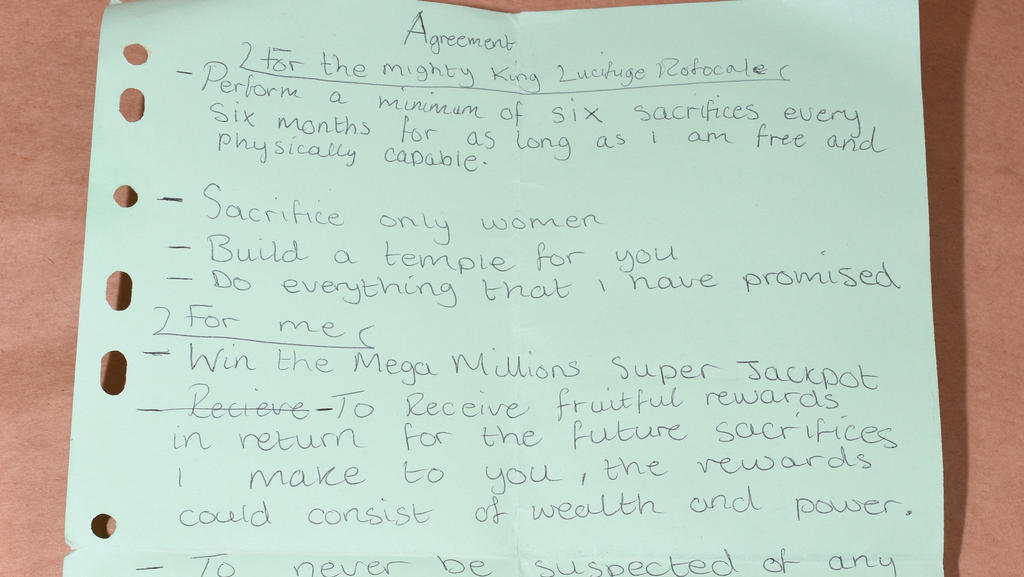 Agreement
For the mighty King Lucifuge Rofocale
- Perform a minimum of six sacrifices every
six months for as long as I am free and
physically capable.
- Sacrifice only women
- Build a temple for you
- Do everything that I have promised
For me
- Win the Mega Millions Super Jackpot
- Recieve - To Receive fruitful rewards
in return for the future sacrifices
I make to you, the rewards
could consist of wealth and power.
- To never be suspected of any